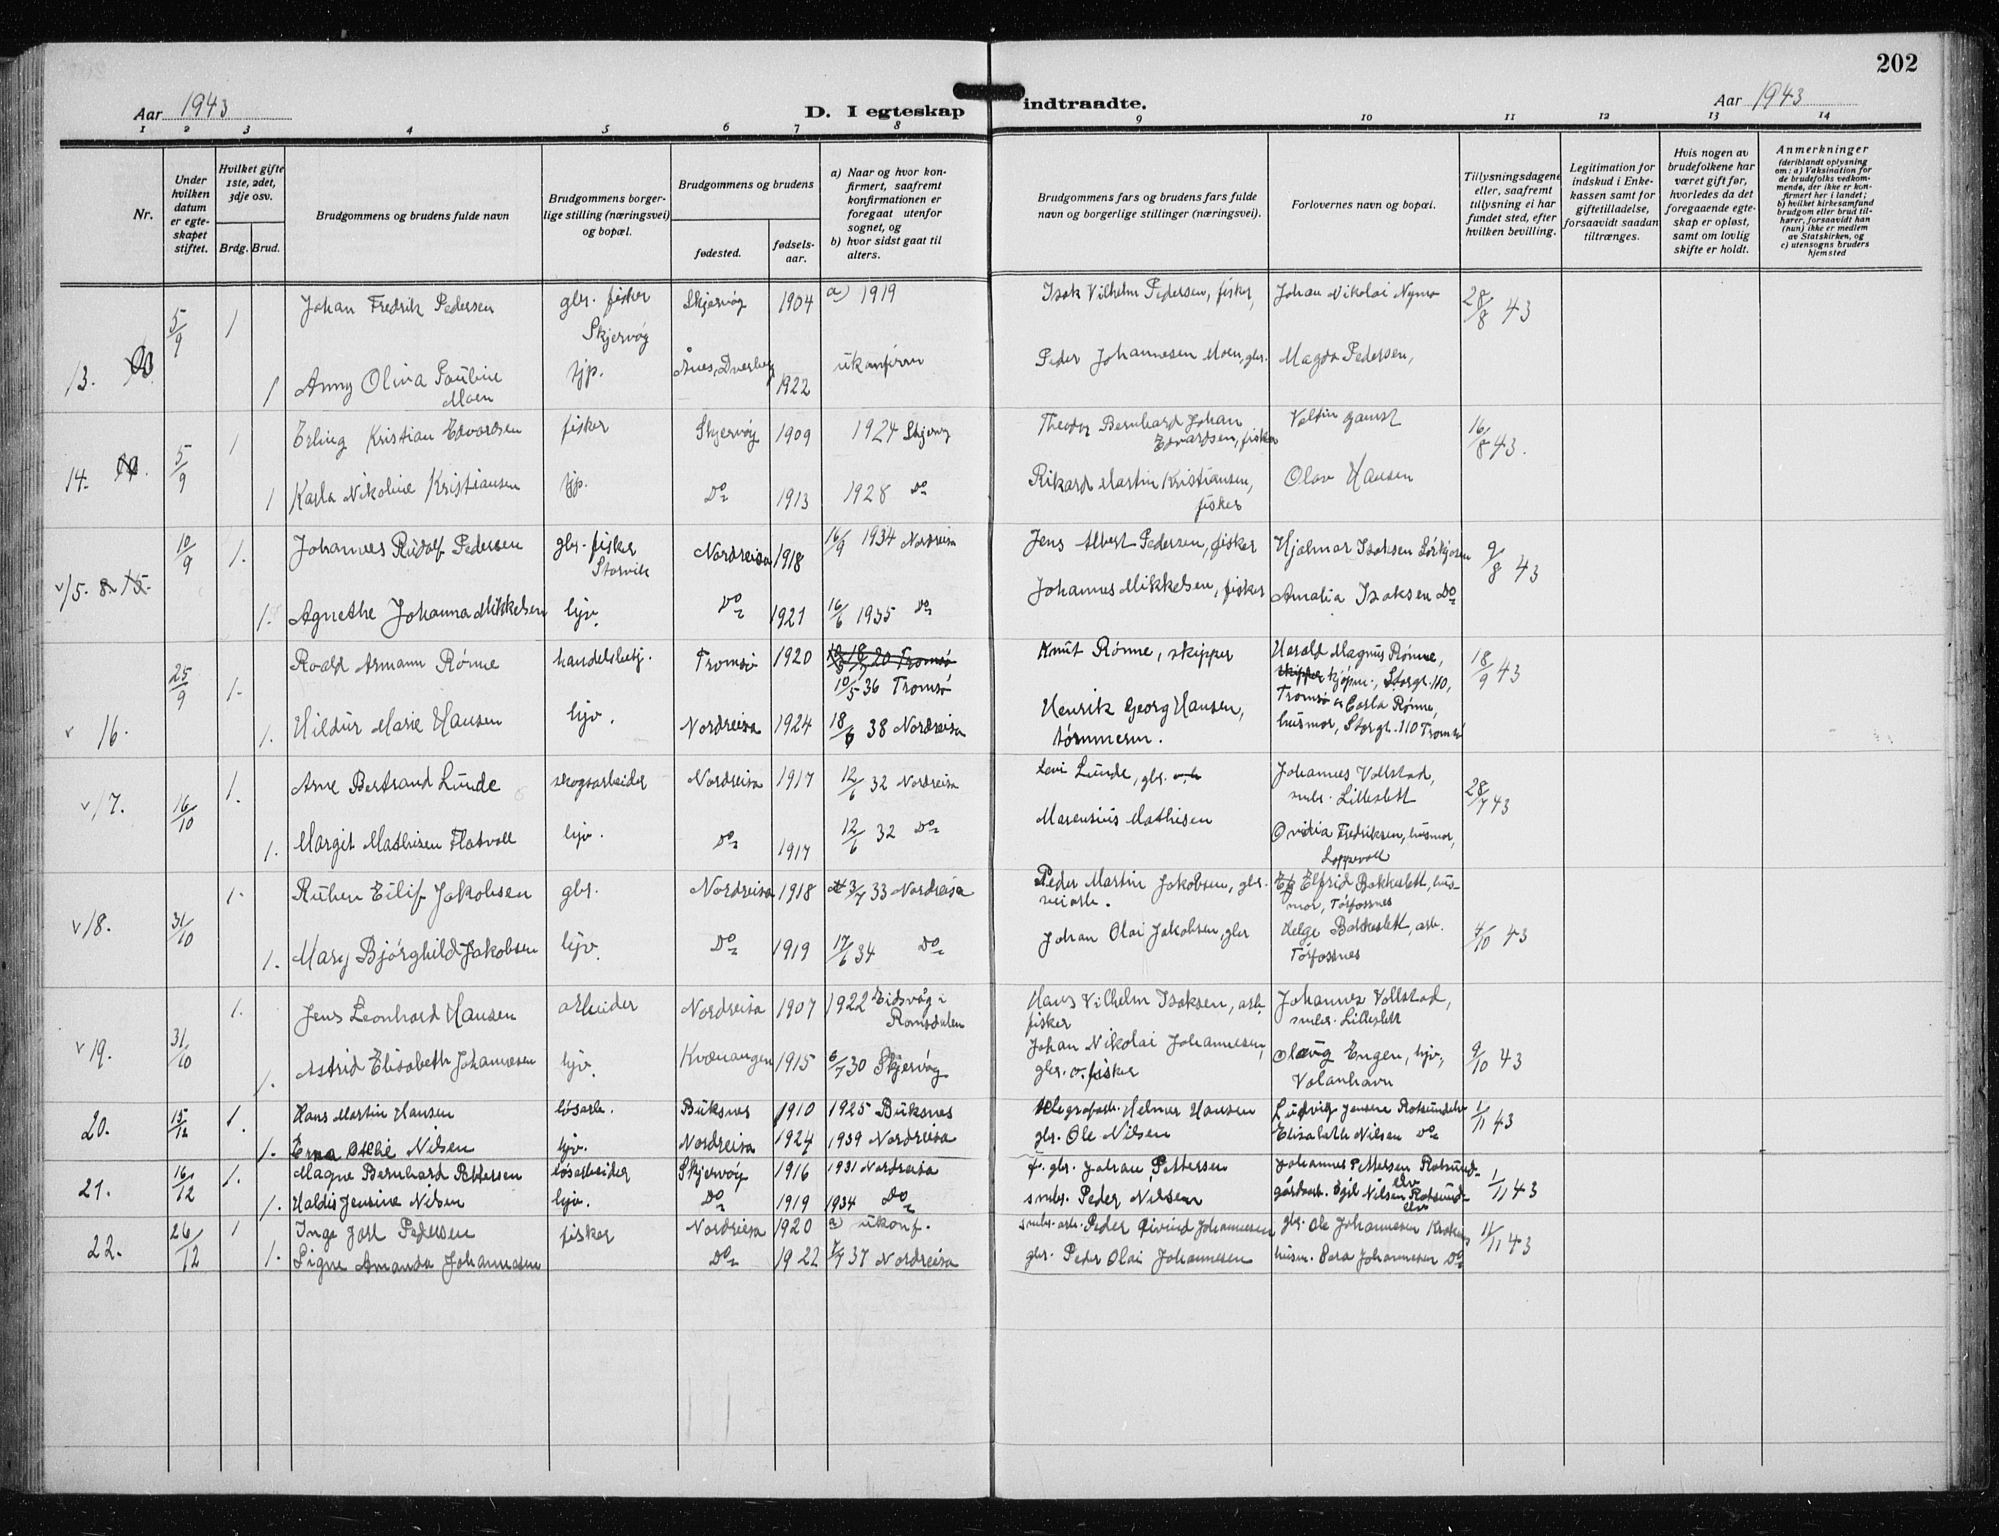 202
Aar 1943
D. I egteskap indtraadte.
Aar 1943
1 2 3 4 5 6 7 8 9 10 11 12 13 14
Nr.
Under hvilken datum er egteskapet stiftet.
Hvilket gifte 1ste, 2det, 3dje osv.
Brdg. Brud.
Brudgommens og brudens fulde navn
Brudgommens borgerlige stilling (næringsvei) og bopæl.
Brudgommens og brudens
fødested.
fødselsaar.
a) Naar og hvor konfirmert, saafremt konfirmationen er foregaat utenfor sognet, og
b) hvor sidst gaat til alters.
Brudgommens fars og brudens fars fulde navn og borgerlige stillinger (næringsvei).
Forlovernes navn og bopæl.
Tillysningsdagene eller, saafremt tillysning ei har fundet sted, efter hvilken bevilling.
Legitimation for indskud i Enkekassen samt for giftetilladelse, forsaavidt saadan tiltrænges.
Hvis nogen av brudefolkene har været gift før, hvorledes da det foregaaende egteskap er opløst, samt om lovlig skifte er holdt.
Anmerkninger
(deriblandt oplysning om: a) Vaksination for de brudefolks vedkommende, der ikke er konfirmert her i landet; b) hvilket kirkesamfund brudgom eller brud tilhører, forsaavidt han (hun) ikke er medlem av Statskirken, og c) utensogns bruders hjemsted
13. 5/9 1 Johan Fredrik Pedersen gbr. fisker Skjervøy Skjervøy 1904 a) 1919 Isak Vilhelm Pedersen, fisker, Johan Nikolai Nymo 28/8 43
1 Anny Olina Pauline Moen tjp. Ånes, Dverberg 1922 ukonfirm Peder Johannesen Moen, gbr. Magda Pedersen,
14. 5/9 1 Erling Kristian Edvardsen fisker Skjervøy 1909 1924 Skjervøy Theodor Bernhard Johan Edvardsen, fisker Gamst 16/8 43.
1 Karla Nikoline Kristiansen tjp. Do 1913 1928 Do Rikard Martin Kristiansen, fisker Olav Hansen
v 15. 10/9 1. Johannes Rudolf Pedersen gbr. fisker Storvik Nordreisa 1918 16/9 1934 Nordreisa Jens Albert Pedersen, fisker Hjalmar Isaksen Sørkjosen 9/8 43
1. Agnethe Johanna Mikkelsen hjv. Do 1921 16/6 1935 Do Johannes Mikkelsen, fisker Amalia Isaksen Do
v 16. 25/9 1. Roald Armann Rønne handelsbetj. Tromsø 1920 10/5 36 Tromsø Knut Rønne, skipper Harald Magnus Rønne, skipper kjøpm., Storgt. 110, Tromsø og Carla Rønne, husmor, Storgt. 110 Tromsø 18/9 43
1. Hildur Marie Hansen hjv. Nordreisa 1924 18/6 38 Nordreisa Henrik Georg Hansen, tømmerm.
v 17. 16/10 1. Arne Bertrand Lunde skogsarbeider Nordreisa 1917 12/6 32 Nordreisa Levi Lunde, gbr. Johannes Vollstad, smbr. Lilleslett 28/7 43
1. Margit Mathisen Flatvoll hjv. Do 1917 12/6 32 Do Marensius Mathisen Ovidia Fredriksen, husmor, Loppevoll
v 18. 31/10 1. Ruben Eilif Jakobsen gbr. Nordreisa 1918 3/7 33 Nordreisa Peder Martin Jakobsen, gbr. veiarb. Elfrid Bakkeslett, husmor, Tørfossnes
1. Mary Bjørghild Jakobsen hjv. Do 1919 17/6 34 Do Johan Olai Jakobsen, gbr Helge Bakkeslett, arb. Tørfossnes 4/10 43
v 19. 31/10 1. Jens Leonhard Hansen arbeider Nordreisa 1907 1922 Eidsvåg i Romsdalen Hans Vilhelm Isaksen, arb. fisker Johannes Vollstad, smbr. Lilleslett
1. Astrid Elisabeth Johannesen hjv. Kvænangen 1915 6/7 30 Skjervøy Johan Nikolai Johannesen, gbr. o. fisker Olaug Engen, hjv., Volanhavn 9/10 43
20. 15/12 1. Hans Martin Hansen løsarb. Buksnes 1910 1925 Buksnes telegrafarb. Helmer Hansen Ludvig Jensen Rotsundelv 1/11 43
1. Erna Othie Nilsen hjv. Nordreisa 1924 1939 Nordreisa gbr. Ole Nilsen Elisabeth Nilsen Do
21. 16/12 1. Magne Bernhard Pettersen løsarbeider Skjervøy 1916 1931 Nordreisa f. gbr. Johan Pettersen Johannes Pettersen Rotsundelv 1/11 43
1. Haldis Jensine Nilsen hjv. Do 1919 1934 Do smbr. Peder Nilsen gårdarb. Egil Nilsen Rotsundelv
22. 26/12 1 Inge Jarl Pedersen fisker Nordreisa 1920 a) ukonf. smbr. arb. Peder Eivind Johannesen gbr. Ole Johannesen 11/11 43
1. Signe Amanda Johannesen Do 1922 37 Nordreisa gbr. Peder Olai Johannesen husm. Sara Johannesen Do